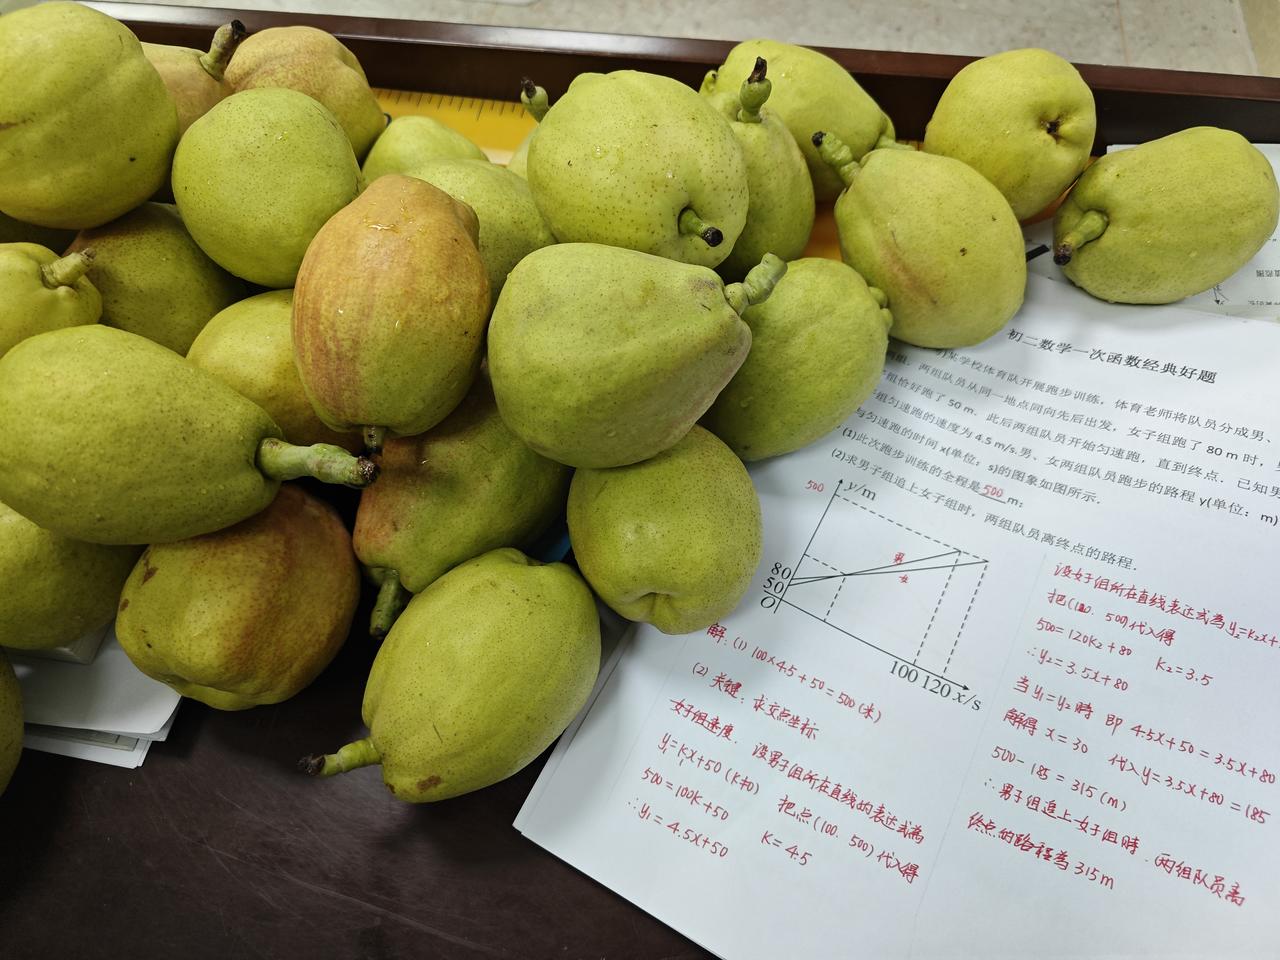 初二数学一次函数经典好题
某学校体育队开展跑步训练，体育老师将队员分成男、
两组队员从同一地点同向先后出发，女子组跑了 80 m 时，
组恰好跑了 50 m．此后两组队员开始匀速跑，直到终点．已知男
组匀速跑的速度为 4.5 m/s.男、女两组队员跑步的路程 y(单位：m)
与匀速跑的时间 x(单位：s)的图象如图所示．
(1)此次跑步训练的全程是500m；
(2)求男子组追上女子组时，两组队员离终点的路程．
500
y/m
男
女
80
50
O
100 120 x/s
解: (1) 100×4.5+50=500(米)
(2) 关键: 求交点坐标
女子组速度. 设男子组所在直线的表达式为
y₁=k₁x+50 (k≠0) 把点(100. 500)代入得
500=100k+50 K=4.5
∴y₁=4.5x+50
设女子组所在直线表达式为y₂=k₂x+
把( . 500)代入得
500=120k₂+80 K₂=3.5
∴y₂=3.5x+80
当 y₁=y₂ 時 即 4.5x+50=3.5x+80
解得 x=30 代入y=3.5x+80=185
500-185=315(m)
∴男子组追上女子组時. 两组队员离
终点的路程為 315m